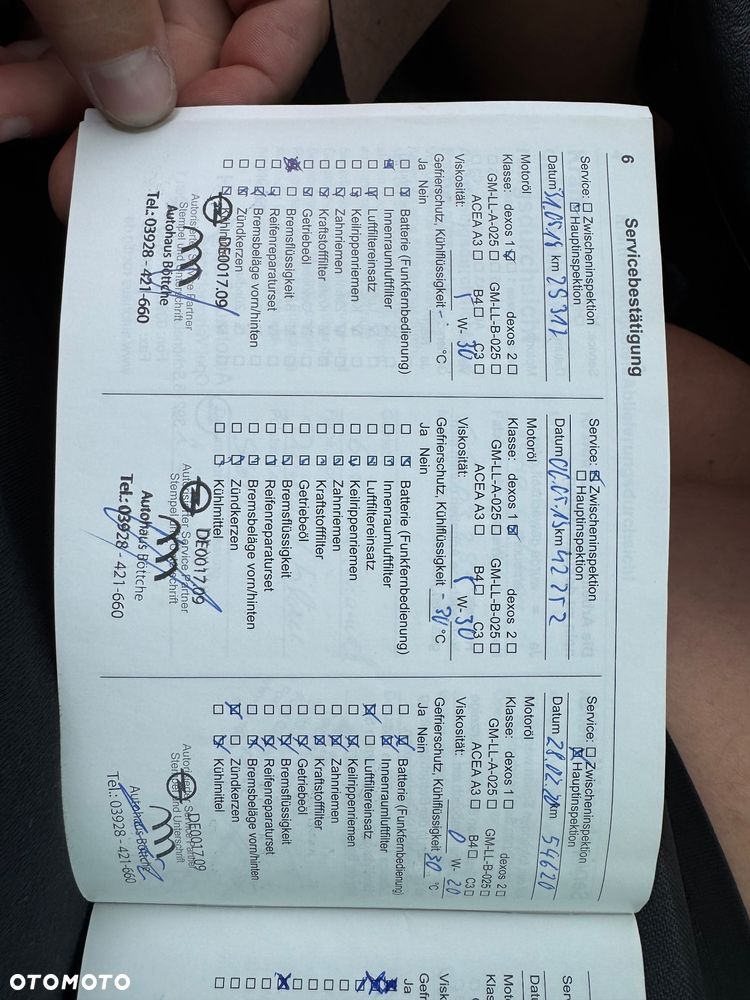 6
Servicebestätigung
Service: ☐ Zwischeninspektion
☒ Hauptinspektion
km 29312
Motoröl
Klasse: dexos 1 ☑ dexos 2 ☐
GM-LL-A-025 ☐ GM-LL-B-025 ☐
ACEA A3 ☐ B4 ☐ C3 ☐
Viskosität: W- 30
Gefrierschutz, Kühlflüssigkeit - °C
Ja Nein
Batterie (Funkfernbedienung)
Innenraumluftfilter
Luftfiltereinsatz
Keilrippenriemen
Zahnriemen
Kraftstofffilter
Getriebeöl
Bremsflüssigkeit
Reifenreparaturset
Bremsbeläge vorn/hinten
Zündkerzen
DE0017.09
Autorisierter Service Partner
Stempel und Unterschrift
Autohaus Böttche
Tel.: 03928 - 421-660
Service: ☒ Zwischeninspektion
☐ Hauptinspektion
Datum 06.05.19 km 42252
Motoröl
Klasse: dexos 1 ☒ dexos 2 ☐
GM-LL-A-025 ☐ GM-LL-B-025 ☐
ACEA A3 ☐ B4 ☐ C3 ☐
Viskosität: W- 30
Gefrierschutz, Kühlflüssigkeit - 30 °C
Ja Nein
Batterie (Funkfernbedienung)
Innenraumluftfilter
Luftfiltereinsatz
Keilrippenriemen
Zahnriemen
Kraftstofffilter
Getriebeöl
Bremsflüssigkeit
Reifenreparaturset
Bremsbeläge vorn/hinten
Zündkerzen
Kühlmittel
DE0017.09
Autorisierter Service Partner
Stempel und Unterschrift
Autohaus Böttche
Tel.: 03928 - 421-660
Service: ☐ Zwischeninspektion
☒ Hauptinspektion
Datum 28.02.20 km 54620
Motoröl
Klasse: dexos 1 ☐ dexos 2 ☐
GM-LL-A-025 ☐ GM-LL-B-025 ☐
ACEA A3 ☐ B4 ☐ C3 ☐
Viskosität: 0 W- 20
Gefrierschutz, Kühlflüssigkeit 30 °C
Ja Nein
Batterie (Funkfernbedienung)
Innenraumluftfilter
Luftfiltereinsatz
Keilrippenriemen
Zahnriemen
Kraftstofffilter
Getriebeöl
Bremsflüssigkeit
Reifenreparaturset
Bremsbeläge vorn/hinten
Zündkerzen
Kühlmittel
DE0017.09
Autorisierter Service Partner
Stempel und Unterschrift
Tel.: 03928 - 421-660
Ja
OTOMOTO